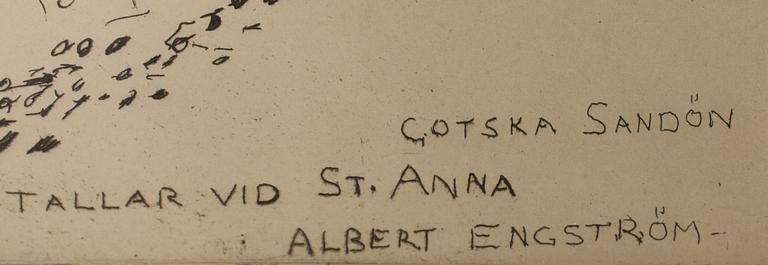 GOTSKA SANDÖN
TALLAR VID ST. ANNA
ALBERT ENGSTRÖM-